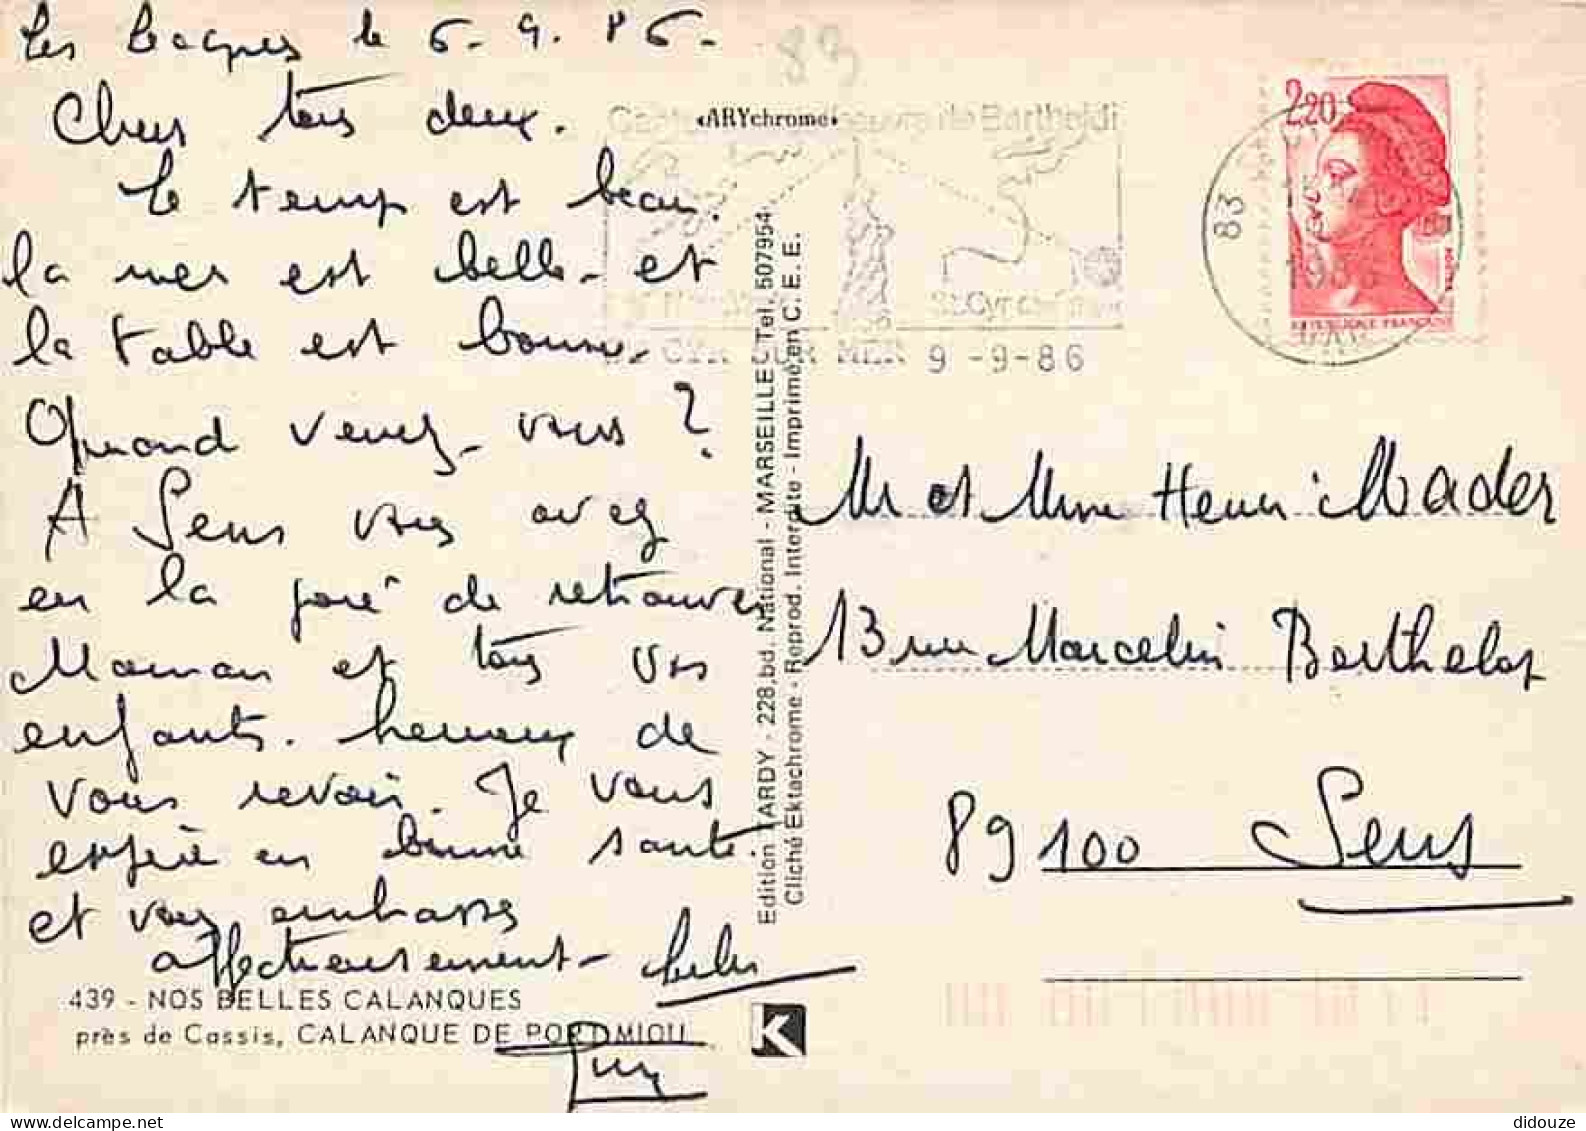 Les Lecques le 6-9.86-
Chers tous deux.
le temps est beau.
la mer est belle - et
la table est bonne.
Quand venez-vous ?
A Sens vous avez
en la joie de retrouver
Maman et tous vos
enfants. heureux de
vous revoir. Je vous
espère en bonne santé.
et vous embrasse
affectueusement -
439 - NOS BELLES CALANQUES
près de Cassis, CALANQUE DE PORT-MIOU
Guy
83
«ARYchrome»
de Bartholdi
St.Cyr
CYR SUR MER 9 -9-86
Edition TARDY - 228,bd. National - MARSEILLE Tel. 507954
Cliché Ektachrome - Reprod. Interdite - Imprimé en C. E. E.
K
2,20
83
1986
REPUBLIQUE FRANÇAISE
VAR
Mr et Mme Henri Mader
13 rue Marcelin Berthelot
89100 Sens
didouze